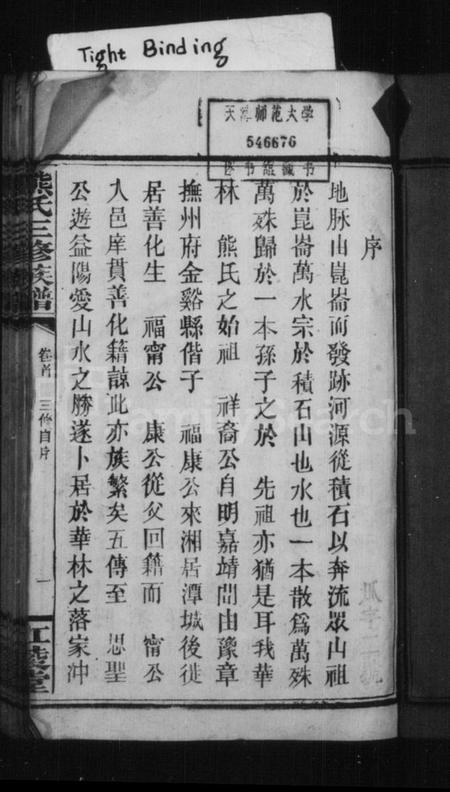 Tight Binding
天津师范大学
546676
图书馆藏书
序
地脉山崑崙而發跡河源從積石以奔流眾山祖
於崑崙萬水宗於積石山也水也一本散爲萬殊
萬殊歸於一本孫子之於 先祖亦猶是耳我華
林 熊氏之始祖 祥裔公自明嘉靖間由豫章
撫州府金谿縣偕子 福康公來湘居潭城後徙
居善化生 福甯公 康公從父回籍而 甯公
入邑庠貫善化籍諒此亦族繁矣五傳至 思聖
公遊益陽愛山水之勝遂卜居於華林之落家沖
熊氏三修族譜
卷首 三修自序
一
江陵堂
FamilySearch